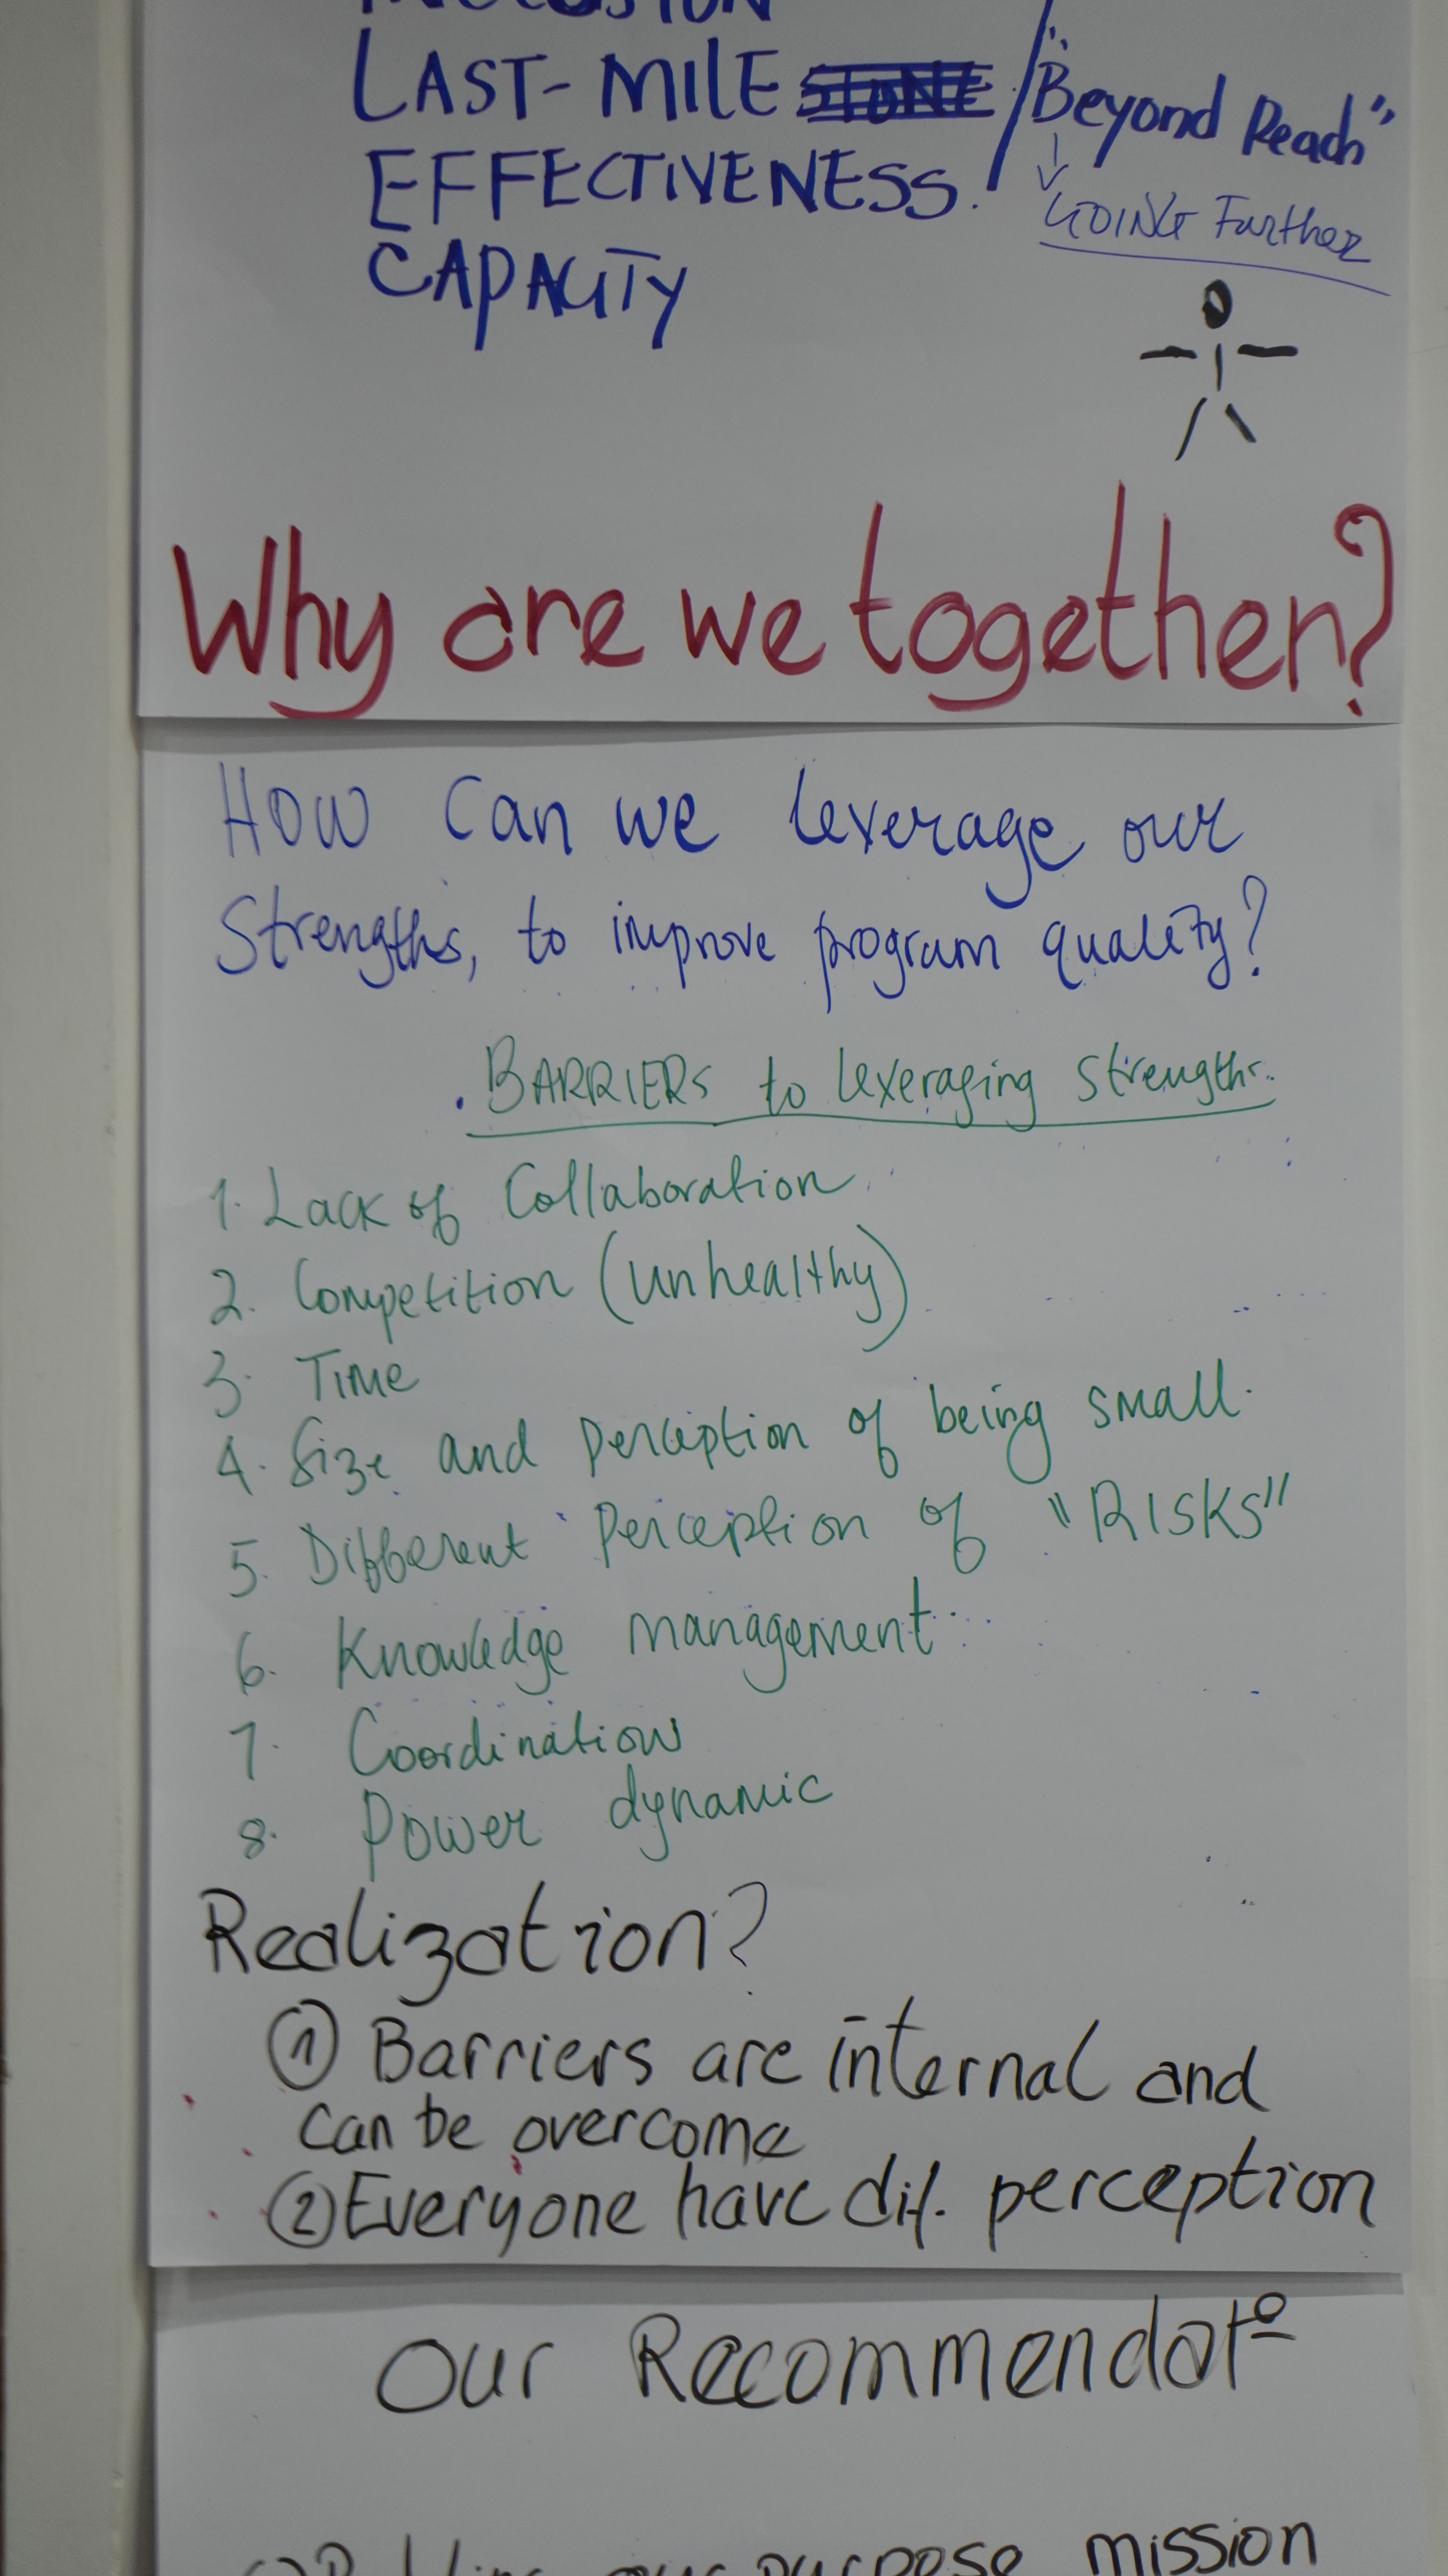 INCLUSION
LAST-MILE STONE / "Beyond Reach"
EFFECTIVENESS.
GOING Further
CAPACITY
Why are we together?
How Can we leverage our
Strengths, to improve program quality?
. BARRIERS to leveraging Strengths.
1. Lack of Collaboration
2. Competition (unhealthy)
3. Time
4. Size and perception of being small.
5. Different Perception of "RISKS"
6. Knowledge management
7. Coordination
8. Power dynamic
Realization?
① Barriers are internal and
can be overcome
② Everyone have dif. perception
Our Recommendat°
our purpose mission